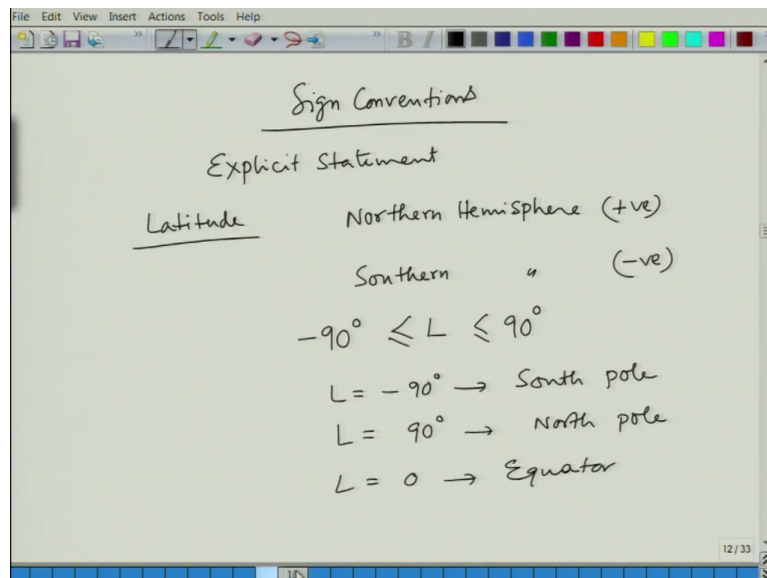 File Edit View Insert Actions Tools Help
Sign Conventions
Explicit Statement
Latitude Northern Hemisphere (+ve)
Southern " (-ve)
-90° ≤ L ≤ 90°
L = -90° → South pole
L = 90° → North pole
L = 0 → Equator
12 / 33